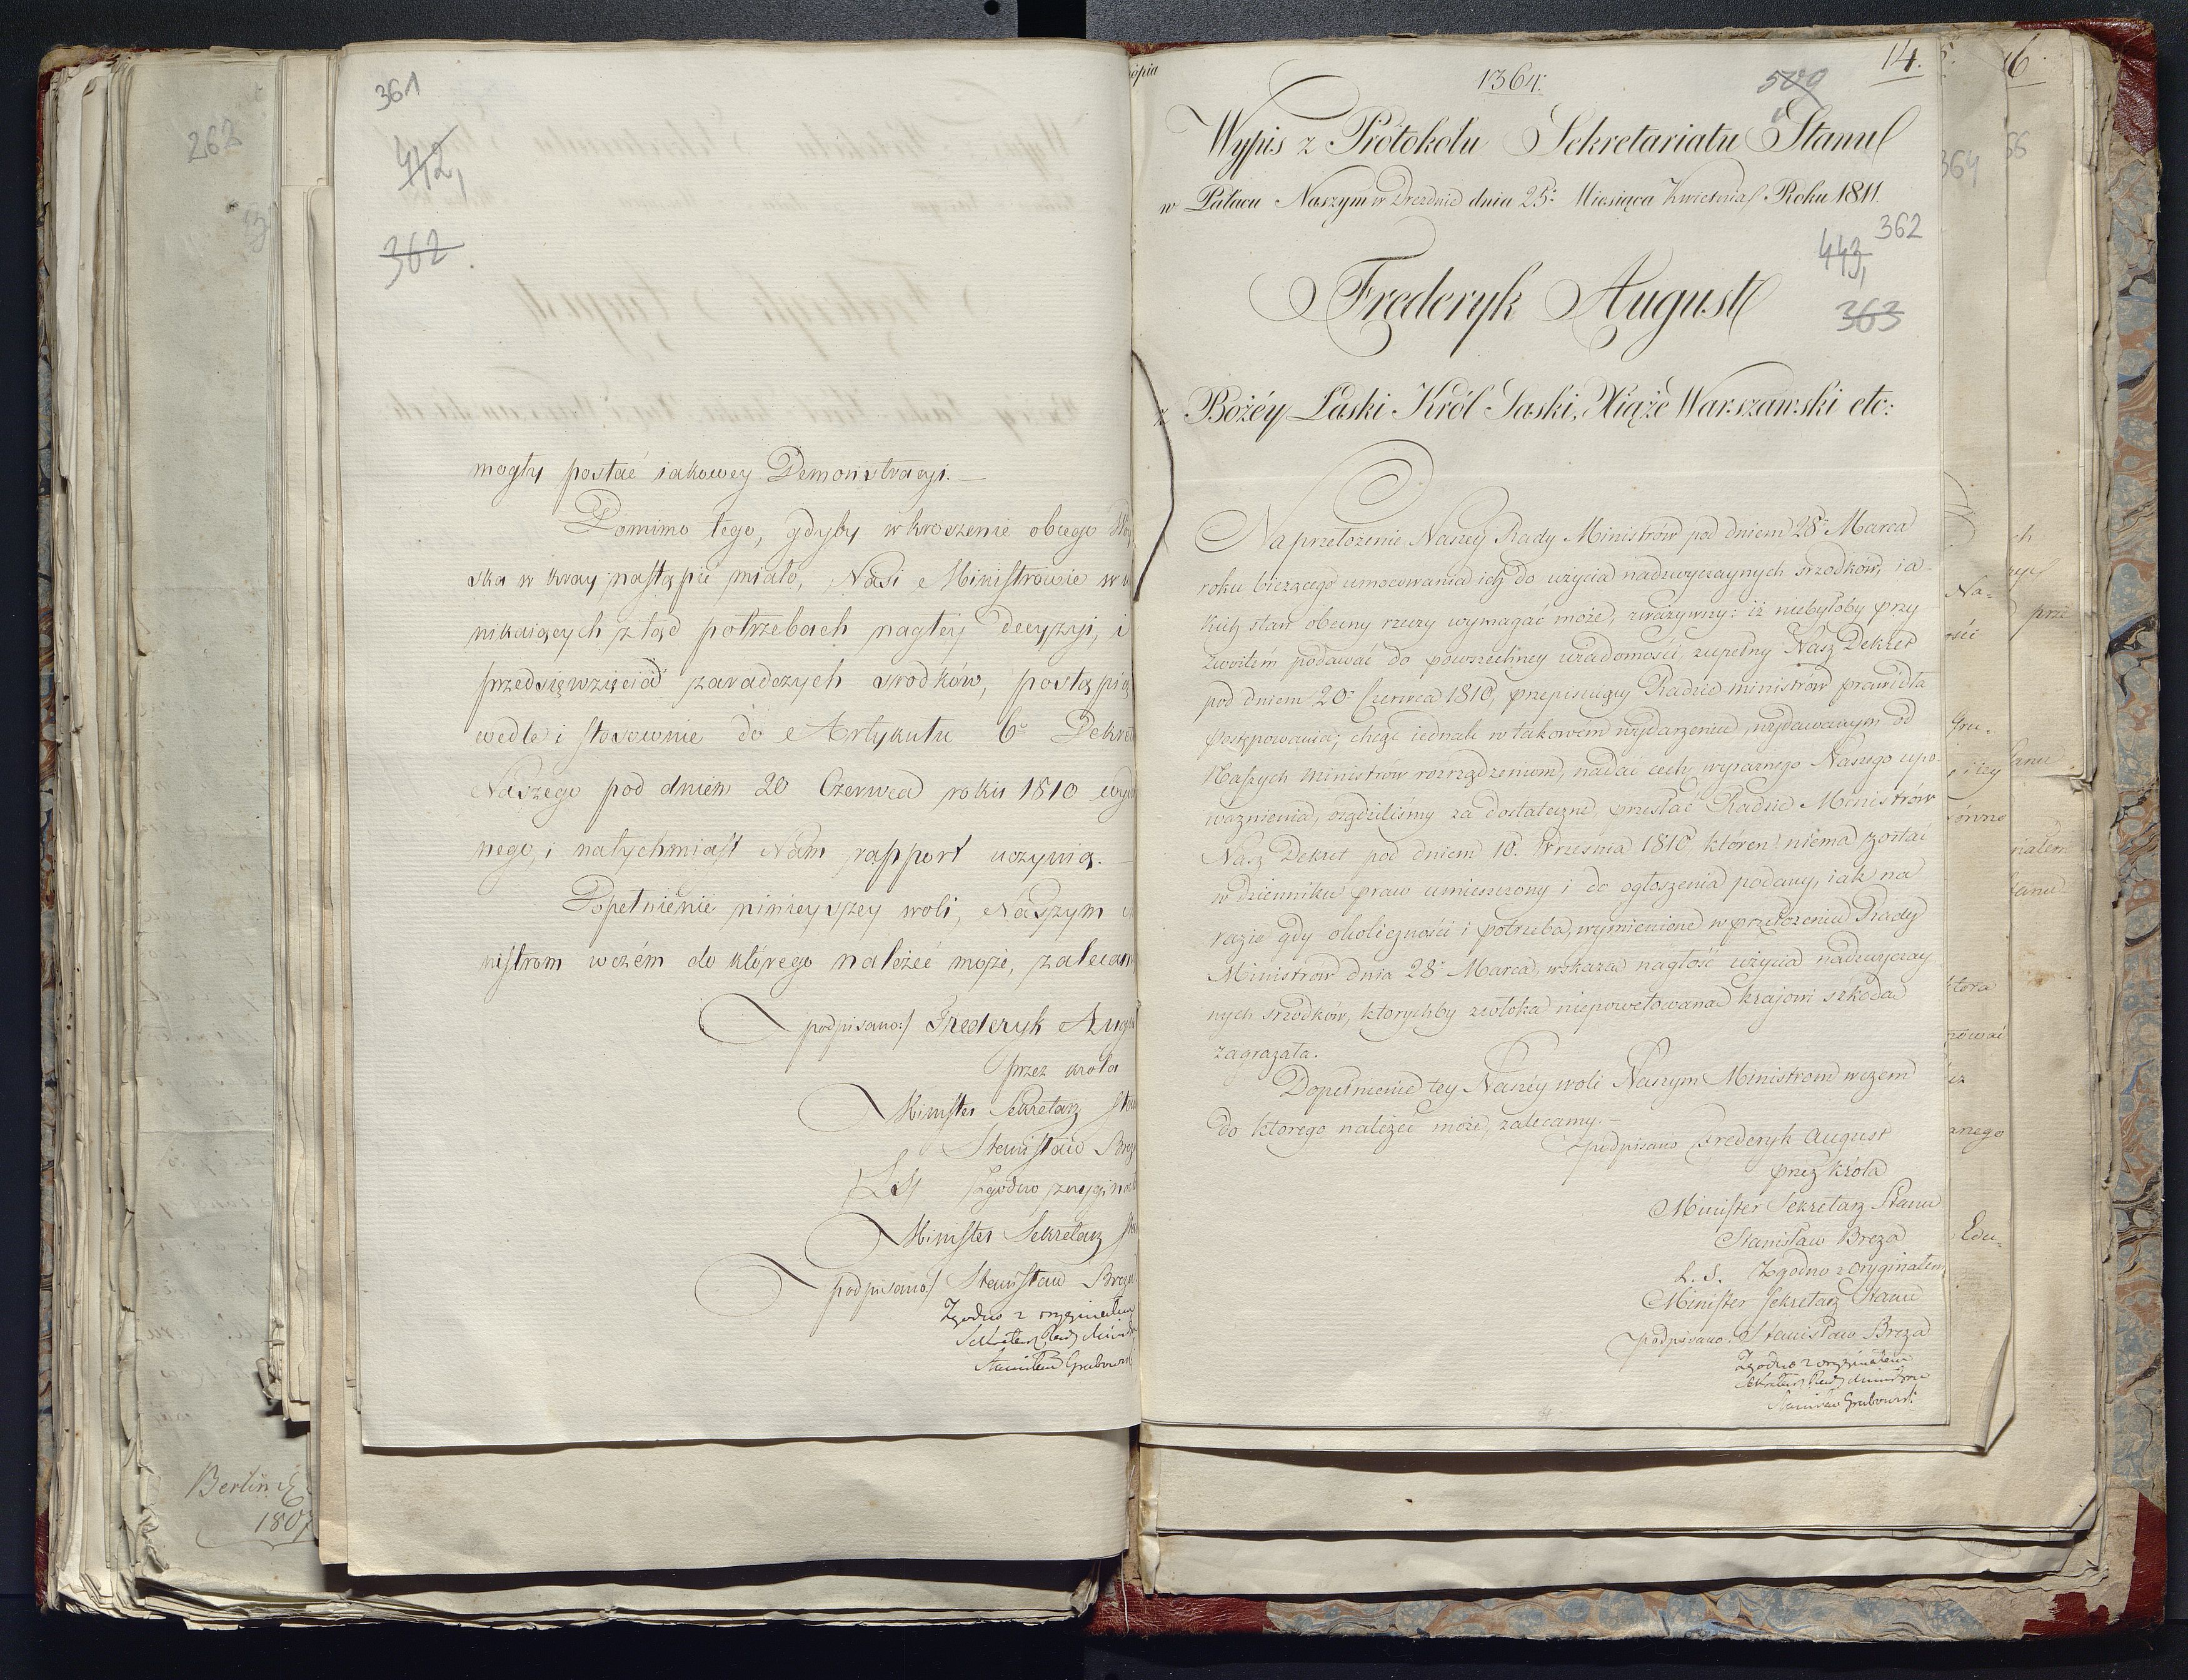 361
442,
362
mogły postać iakowey Demonstracyi. —
Pomimo tego, gdyby wkroczenie obcego
ska w kray nastąpić miało, Nasi Ministrowie w
nikaiących ztąd potrzebach nagłey decyzyi, i
przedsięwzięcia zaradczych srodków, postąpią
wedle i stosownie do Artykułu 6º Dekre
Naszego pod dniem 20 Czerwca roku 1810 wyd
nego, i natychmiast Nam rapport uczynią. —
Dopełnienie ninieyszey woli, Naszym
nistrom wczém do którego należeć może, zalecam
podpisano:/ Frederyk Augu
przez króla
Minister Sekretarz Sta
Stanisław Brez
LS Zgodno z orygina
Minister Sekretarz
podpisano/ Stanisław Breza
Zgodno z oryginałem
Sekretarz Rady Minist
Stanisław Grabowsk
262
Berlin
1807
opia
1364.
509
14.
Wypis z Protokołu Sekretariatu Stanu
w Pałacu Naszym w Dreznie dnia 25º Miesiąca Kwietnia Roku 1811.
362
443,
363
Frederyk August
z Bożéy Łaski Król Saski, Xiąże Warszawski etc:
Na przełożenie Naszey Rady Ministrów pod dniem 28º Marca
roku bieżącego umocowania ich do użycia nadzwyczaynych srzodków, ia-
kich stan obecny rzeczy wymagać może, zważywszy: iż niebyłoby przy
zwoitem podawać do powszechney wiadomości, zupełny Nasz Dekret
pod dniem 20º Czerwca 1810, przepisuiący Radzie ministrów prawidła
postępowania; chcąc iednak w takowem wydarzeniu, wydawanym od
Naszych ministrów rozrządzeniom, nadać cechę wyraznego Naszego upo-
ważnienia, osądziliśmy za dostateczne, przesłać Radzie Ministrów
Nasz Dekret pod dniem 10. Września 1810 któren niema zostać
w dzienniku praw umieszczony i do ogłoszenia podany, iak na
razie gdy okoliczności i potrzeba, wymienione w przełożeniu Rady
Ministrów dnia 28º Marca, wskaza nagłość użycia nadzwyczay
nych srzodków, ktorychby zwłoka niepowetowana krajowi szkoda
zagrażała.
Dopełnienie tey Naszéy woli Naszym Ministrom wczem
do ktorego należeć może, zalecamy. —
podpisano Frederyk August
przez Króla
Minister Sekretarz Stanu
Stanisław Breza
L. S. Zgodno z oryginałem
Minister Sekretarz Stanu
podpisano. Stanisław Breza
Zgodno z oryginałem
Sekretarz Rady Ministrow
Stanisław Grabowski
364
Na-
ość
Gru-
i iey
ównie
która
nego
Edu-
16.
66